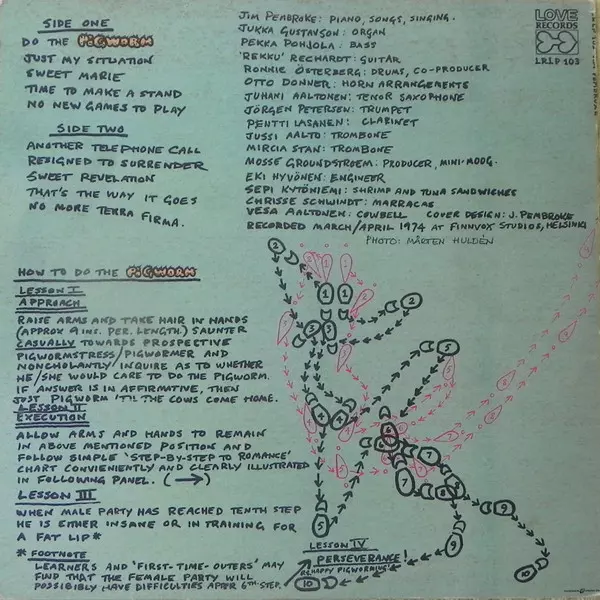 SIDE ONE
DO THE PIGWORM
JUST MY SITUATION
SWEET MARIE
TIME TO MAKE A STAND
NO NEW GAMES TO PLAY
SIDE TWO
ANOTHER TELEPHONE CALL
RESIGNED TO SURRENDER
SWEET REVELATION
THAT'S THE WAY IT GOES
NO MORE TERRA FIRMA.
JIM PEMBROKE: PIANO, SONGS, SINGING.
JUKKA GUSTAVSON: ORGAN
PEKKA POHJOLA: BASS
'REKKU' RECHARDT: GUITAR
RONNIE ÖSTERBERG: DRUMS, CO-PRODUCER
OTTO DONNER: HORN ARRANGEMENTS
JUHANI AALTONEN: TENOR SAXOPHONE
JÖRGEN PETERSEN: TRUMPET
PENTTI LASANEN: CLARINET
JUSSI AALTO: TROMBONE
MIRCIA STAN: TROMBONE
MOSSE GROUNDSTROEM: PRODUCER, MINI-MOOG.
EKI HYVÖNEN: ENGINEER
SEPI KYTÖNIEMI: SHRIMP AND TUNA SANDWICHES
CHRISSE SCHWINDT: MARRACAS
VESA AALTONEN: COWBELL COVER DESIGN: J. PEMBROKE
RECORDED MARCH/APRIL 1974 AT FINNVOX STUDIOS, HELSINKI
PHOTO: MÅRTEN HULDÉN
LOVE
RECORDS
LRLP 103
HOW TO DO THE PIGWORM
LESSON I
APPROACH
RAISE ARMS AND TAKE HAIR IN HANDS
(APPROX 9 INS. PER. LENGTH.) SAUNTER
CASUALLY TOWARDS PROSPECTIVE
PIGWORMSTRESS/PIGWORMER AND
NONCHOLANTLY INQUIRE AS TO WHETHER
HE/SHE WOULD CARE TO DO THE PIGWORM.
IF ANSWER IS IN AFFIRMATIVE, THEN
JUST PIGWORM 'TIL THE COWS COME HOME.
LESSON II
EXECUTION
ALLOW ARMS AND HANDS TO REMAIN
IN ABOVE MENTIONED POSITION AND
FOLLOW SIMPLE 'STEP-BY-STEP TO ROMANCE'
CHART CONVENIENTLY AND CLEARLY ILLUSTRATED
IN FOLLOWING PANEL. (→)
LESSON III
WHEN MALE PARTY HAS REACHED TENTH STEP
HE IS EITHER INSANE OR IN TRAINING FOR
A FAT LIP*
* FOOTNOTE
LEARNERS AND 'FIRST-TIME-OUTERS' MAY
FIND THAT THE FEMALE PARTY WILL
POSSIBIBLY HAVE DIFFICULTIES AFTER 6TH STEP.
LESSON IV
PERSEVERANCE!
& HAPPY PIGWORMING!
2
1 1
2
3 3
3
4 4
5
6
7 7
8 8
9
9
10
10